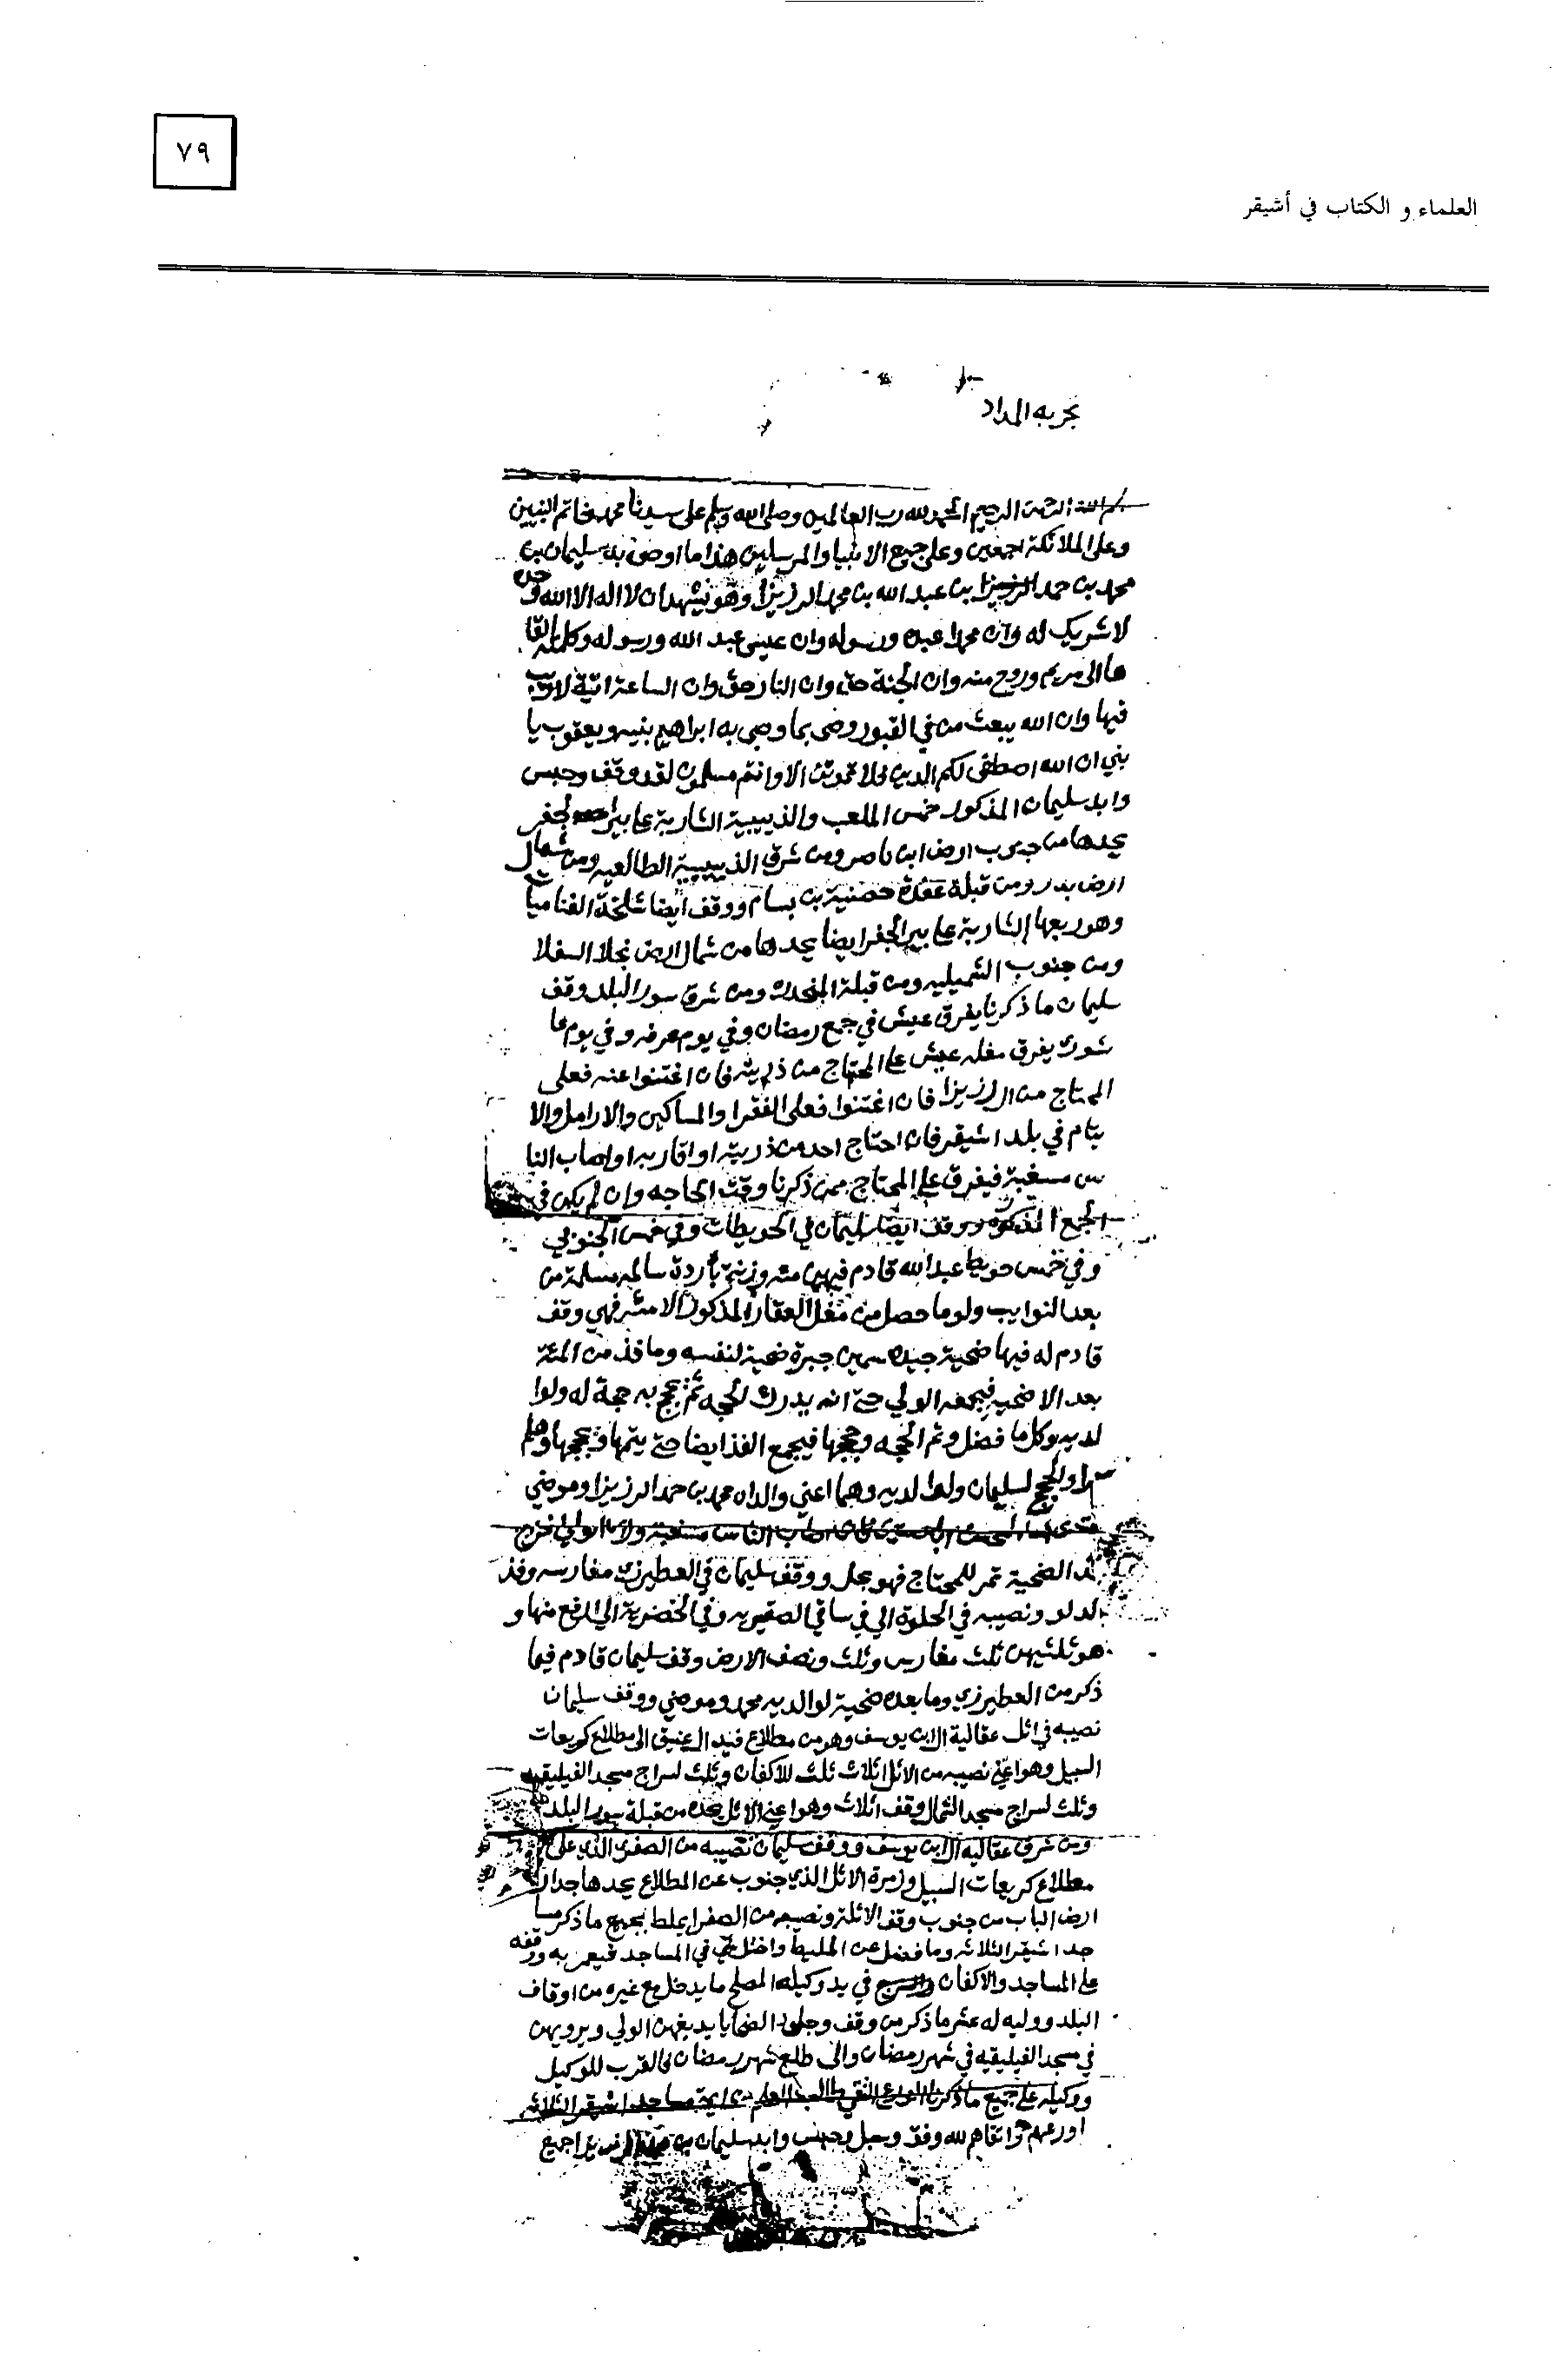 ٧٩
العلماء و الكتاب في أشيقر
تجربه المداد
بسم الله الرحمن الرحيم الحمد لله رب العالمين وصلى الله وسلم على سيدنا محمد خاتم النبيين
وعلى الملائكة اجمعين وعلى جميع الانبيا والمرسلين هذا ما اوصى به سليمان بن
محمد بن حمد الرزيزا بن عبد الله بن محمد الرزيزا وهو يشهد ان لا اله الا الله وحده
لا شريك له وان محمدا عبده ورسوله وان عيسى عبد الله ورسوله وكلمته القا
ها الى مريم وروح منه وان الجنة حق وان النار حق وان الساعة اتية لا ريب
فيها وان الله يبعث من في القبور وصى بما وصى به ابراهيم بنيه ويعقوب يا
بني ان الله اصطفى لكم الدين فلا تموتن الا وانتم مسلمون لقد وقف وحبس
وابد سليمان المذكور خمس الملعب والذييبية الشاربة على بير الجفر
يحدها من جنوب ارض ابن ناصر ومن شرق الذييبية الطالعيه ومن شمال
ارض بدر ومن قبلة عقدة حصنية بن بسام ووقف ايضا شلخة الفناميات
وهو ربعها الشاربة على بير الجفر ايضا يحدها من شمال ارض نخلا السفلا
ومن جنوب الشميليه ومن قبلة ومن شرق سور البلد وقف
سليمان ما ذكرنا يفرق عيش في جمع رمضان وفي يوم عرفه وفي يوم عا
شورا يفرق مغله عيش على المحتاج من ذريته فان اغتنوا عنه فعلى
المحتاج من ال رزيزا فان اغتنوا فعلى الفقرا والمساكين والارامل والا
يتام في بلد اشيقر فان احتاج احد من ذريته او اقاربه او اصاب النا
س مسغبة فيفرق على المحتاج ممن ذكرنا وقت الحاجه وان لم يكن في
الجمع المذكوره ووقف ايضا سليمان في الحويطات وفي خمس الجنوبي
وفي خمس حويط عبدالله قادم فيهن مئة وزنة باردة سالمه مسلمة من
بعد النوايب ولو ما حصل من مغل العقار المذكور الا مئه فهي وقف
قادم له فيها ضحية جيده سمين جبرة ضحية لنفسه وما فذ من المئة
بعد الاضحيه فيجمعه الولي حتى انه يدرك لحجه ثم يحج به حجة له ولوا
لديه وكل ما فضل وتم الحجه وحججها فيجمع الفذ ايضا حتى يتمها ويحججها وهلم
جرا والحجج لسليمان ولوالديه وهما اعني والداه محمد بن حمد الرزيزا وموضي
اصاب الناس مسغبة ولا الولي اخرج
فذ الضحية تمر للمحتاج فهو محل ووقف سليمان في العطيرزي مغارسه وفذ
الدلو ونصيبه في الحلوة الي في ساقي الصقيريه وفي الخضرية الي المرفع منها و
هو ثلثيهن ثلث مغارس وثلث ونصف الارض وقف سليمان قادم فيما
ذكر من العطيرزي وما بعده ضحية لوالديه محمد وموضي ووقف سليمان
نصيبه في اثل عقالية ال ابن يوسف وهو من مطلاع فيد ال عنيق الى مطلاع كريعات
السيل وهو اعني نصيبه من الاثل اثلاث ثلث للاكفان وثلث لسراج مسجد الفيليقيه
وثلث لسراج مسجد الشمال وقف اثلاث وهو اعني الاثل يحده من قبلة سور البلد
ومن شرق عقاليه ال ابن يوسف ووقف سليمان نصيبه من الصفرا الذي على
مطلاع كريعات السيل وزمرة الاثل الذي جنوب عن المطلاع يحدها جدار
ارض الباب من جنوب وقف الاثلة ونصيبه من الصفرا يملط بجميع ما ذكر مسا
جد اشيقر الثلاثه وما فضل عن المليط واختل شي في المساجد فيعمر به ووقفه
على المساجد والاكفان والسرج في يد وكيله المصلح ما يدخل مع غيره من اوقاف
البلد ووليه له عشر ما ذكر من وقف وجلود الضحايا يدبغهن الولي ويرويهن
في مسجد الفيليقيه في شهر رمضان والى طلع شهر رمضان فالقرب للوكيل
ووكيله على جميع ما ذكرنا الورع التقي طالب العلم من ايمة مساجد اشيقر الثلاثه
اورعهم واتقاهم لله وقف وسبل وحبس وابد سليمان بن جميع